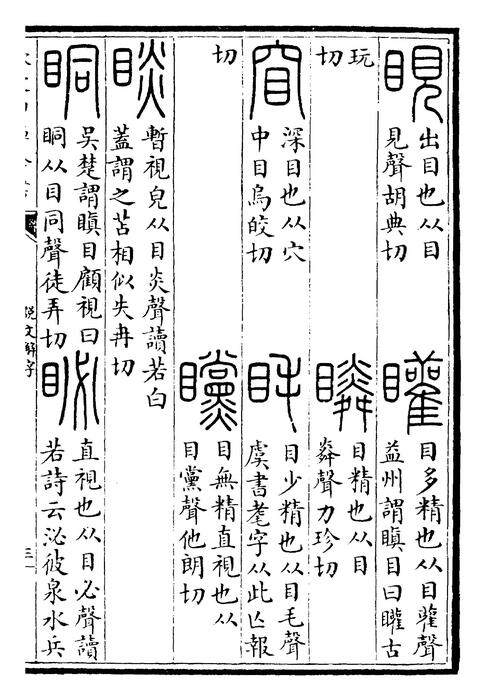 睍
出目也从目
見聲胡典切
矔
目多精也从目雚聲
益州謂瞋目曰矔古
玩
切
瞵
目精也从目
粦聲力珍切
窅
深目也从穴
中目烏皎切
眊
目少精也从目毛聲
虞書耄字从此亡報
切
矘
目無精直視也从
目黨聲他朗切
睒
暫視皃从目炎聲讀若白
蓋謂之苫相似失冉切
眮
吳楚謂瞋目顧視曰
眮从目同聲徒弄切
䀣
直視也从目必聲讀
若詩云泌彼泉水兵
說文解字